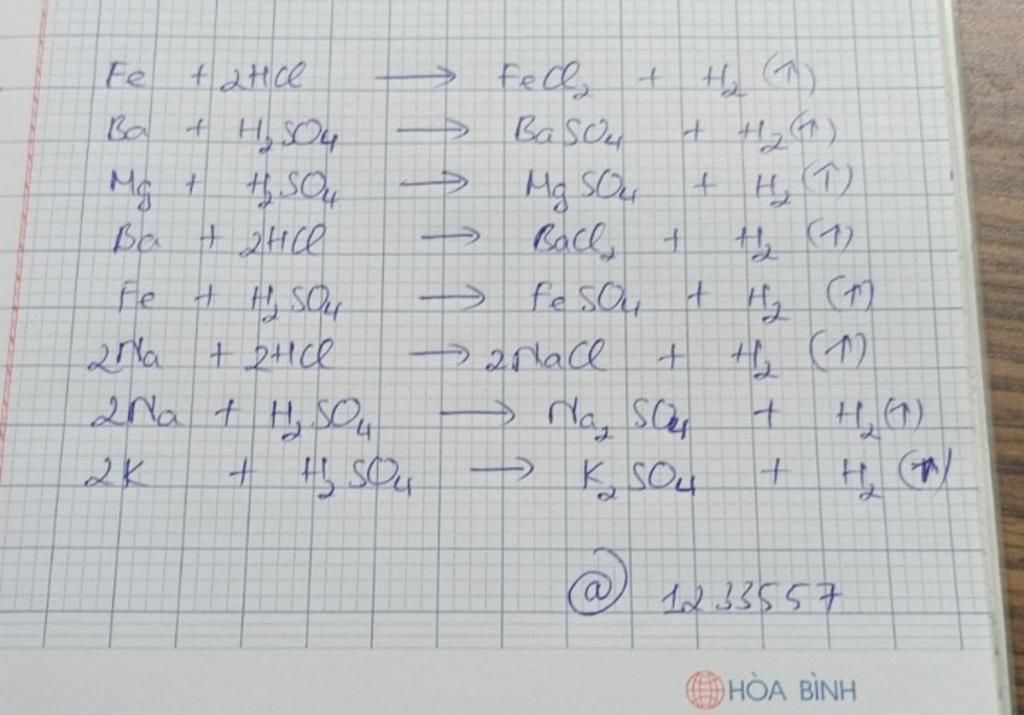 Fe + 2HCl ⟶ FeCl₂ + H₂ (↑)
Ba + H₂SO₄ ⟶ BaSO₄ + H₂(↑)
Mg + H₂SO₄ ⟶ MgSO₄ + H₂ (↑)
Ba + 2HCl ⟶ BaCl₂ + H₂ (↑)
Fe + H₂SO₄ ⟶ FeSO₄ + H₂ (↑)
2Na + 2HCl ⟶ 2NaCl + H₂ (↑)
2Na + H₂SO₄ ⟶ Na₂SO₄ + H₂(↑)
2K + H₂SO₄ ⟶ K₂SO₄ + H₂ (↑)
@ 1233557
HÒA BÌNH